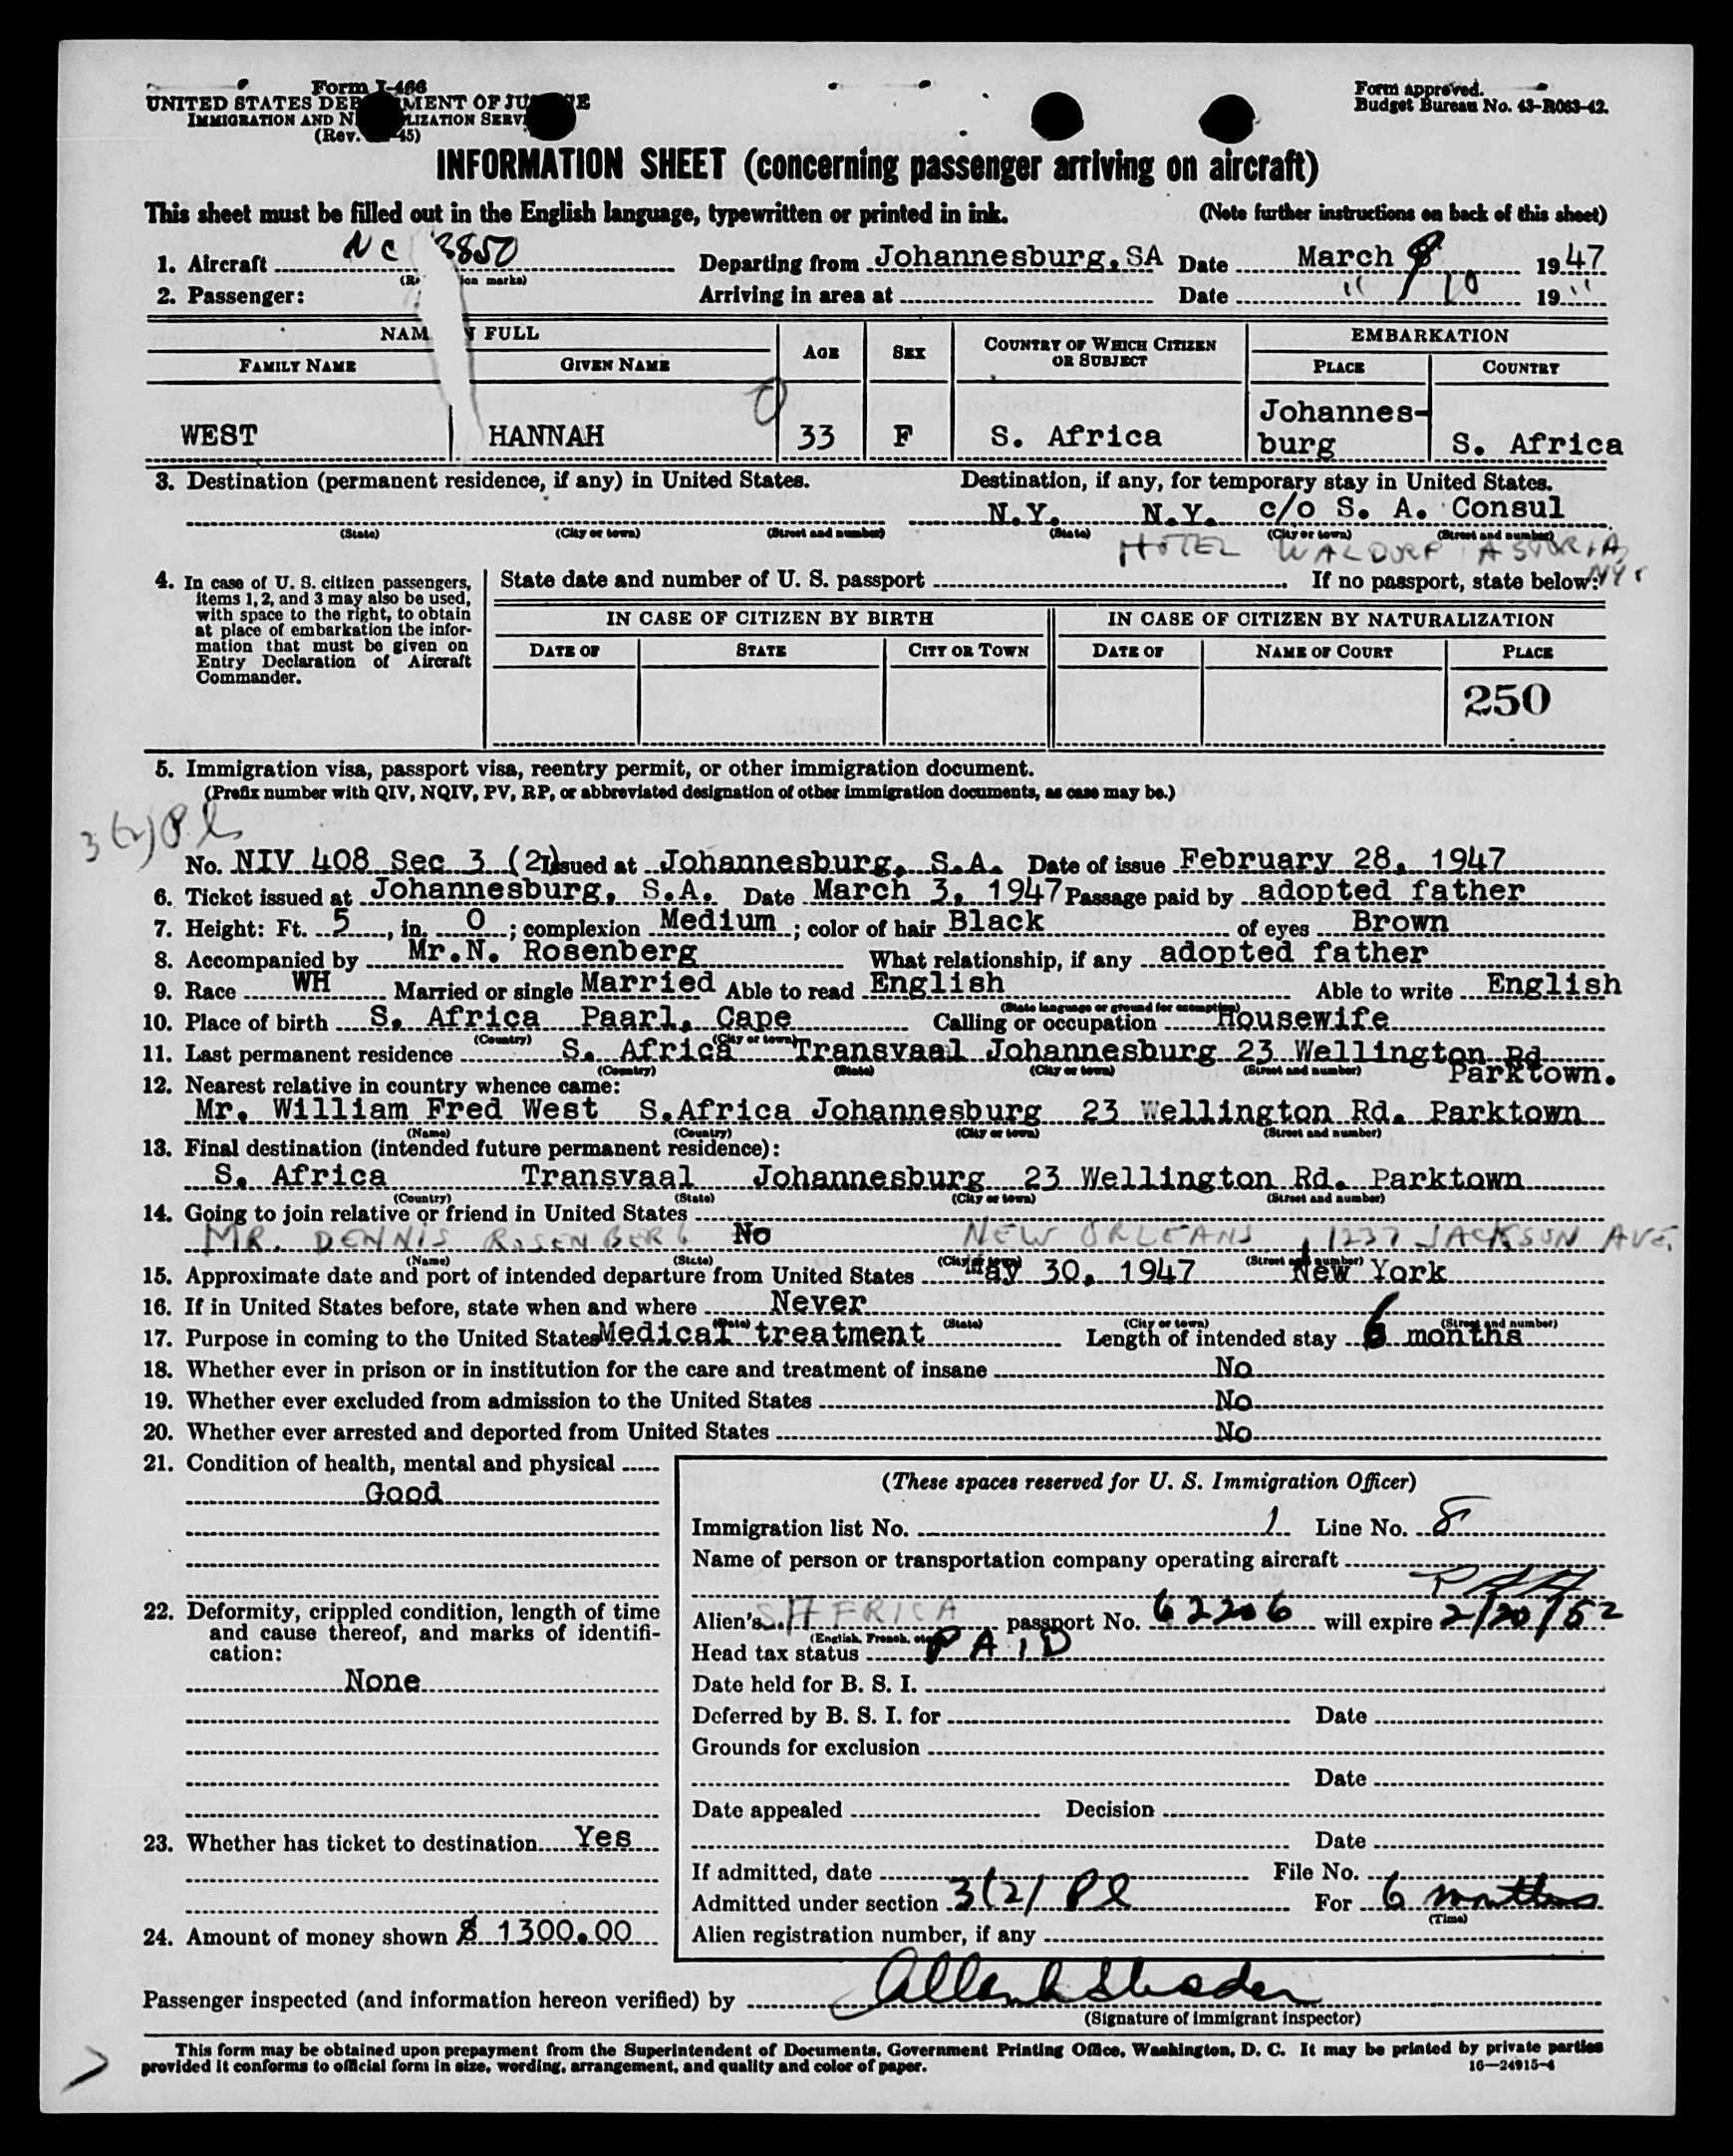 Form I-466
UNITED STATES DEP MENT OF JU E
IMMIGRATION AND N LIZATION SERV
(Rev. 45)
Form approved.
Budget Bureau No. 43-R063-42.
INFORMATION SHEET (concerning passenger arriving on aircraft)
This sheet must be filled out in the English language, typewritten or printed in ink. (Note further instructions on back of this sheet)
1. Aircraft NC 3850 Departing from Johannesburg, SA Date March 8 1947
2. Passenger: Arriving in area at Date " 10 19 "
NAM N FULL AGE SEX COUNTRY OF WHICH CITIZEN OR SUBJECT EMBARKATION
FAMILY NAME GIVEN NAME PLACE COUNTRY
Johannes-
WEST HANNAH 33 F S. Africa burg S. Africa
3. Destination (permanent residence, if any) in United States. Destination, if any, for temporary stay in United States.
N.Y. N.Y. c/o S. A. Consul
(State) (City or town) (Street and number) (State) (City or town) (Street and number)
HOTEL WALDORF ASTORIA
NYC
4. In case of U. S. citizen passengers, items 1, 2, and 3 may also be used, with space to the right, to obtain at place of embarkation the information that must be given on Entry Declaration of Aircraft Commander.
State date and number of U. S. passport If no passport, state below:
IN CASE OF CITIZEN BY BIRTH IN CASE OF CITIZEN BY NATURALIZATION
DATE OF STATE CITY OR TOWN DATE OF NAME OF COURT PLACE
250
5. Immigration visa, passport visa, reentry permit, or other immigration document.
(Prefix number with QIV, NQIV, PV, RP, or abbreviated designation of other immigration documents, as case may be.)
3(2) Pl
No. NIV 408 Sec 3 (2) Issued at Johannesburg, S.A. Date of issue February 28, 1947
6. Ticket issued at Johannesburg, S.A. Date March 3, 1947 Passage paid by adopted father
7. Height: Ft. 5, in. 0; complexion Medium; color of hair Black of eyes Brown
8. Accompanied by Mr.N. Rosenberg What relationship, if any adopted father
9. Race WH Married or single Married Able to read English Able to write English
(State language or ground for exemption)
10. Place of birth S. Africa Paarl, Cape Calling or occupation Housewife
(Country) (City or town)
11. Last permanent residence S. Africa Transvaal Johannesburg 23 Wellington Rd
(Country) (State) (City or town) (Street and number) Parktown.
12. Nearest relative in country whence came:
Mr. William Fred West S.Africa Johannesburg 23 Wellington Rd. Parktown
(Name) (Country) (City or town) (Street and number)
13. Final destination (intended future permanent residence):
S. Africa Transvaal Johannesburg 23 Wellington Rd. Parktown
(Country) (State) (City or town) (Street and number)
14. Going to join relative or friend in United States
MR. DENNIS ROSENBERG No NEW ORLEANS, 1237 JACKSON AVE.
(Name) (State) (City or town) (Street and number)
15. Approximate date and port of intended departure from United States May 30, 1947 New York
16. If in United States before, state when and where Never
(Date) (State) (City or town) (Street and number)
17. Purpose in coming to the United States Medical treatment Length of intended stay 6 months
18. Whether ever in prison or in institution for the care and treatment of insane No
19. Whether ever excluded from admission to the United States No
20. Whether ever arrested and deported from United States No
21. Condition of health, mental and physical
Good
22. Deformity, crippled condition, length of time and cause thereof, and marks of identification:
None
23. Whether has ticket to destination Yes
24. Amount of money shown $ 1300.00
(These spaces reserved for U. S. Immigration Officer)
Immigration list No. 1 Line No. 8
Name of person or transportation company operating aircraft
PAA
Alien's S. AFRICA passport No. 62206 will expire 2/20/52
(English, French, etc.)
Head tax status PAID
Date held for B. S. I.
Deferred by B. S. I. for Date
Grounds for exclusion
Date
Date appealed Decision
Date
If admitted, date File No.
Admitted under section 3(2) Pl For 6 months
(Time)
Alien registration number, if any
Passenger inspected (and information hereon verified) by
(Signature of immigrant inspector)
This form may be obtained upon prepayment from the Superintendent of Documents, Government Printing Office, Washington, D. C. It may be printed by private parties
provided it conforms to official form in size, wording, arrangement, and quality and color of paper. 16—24915-4